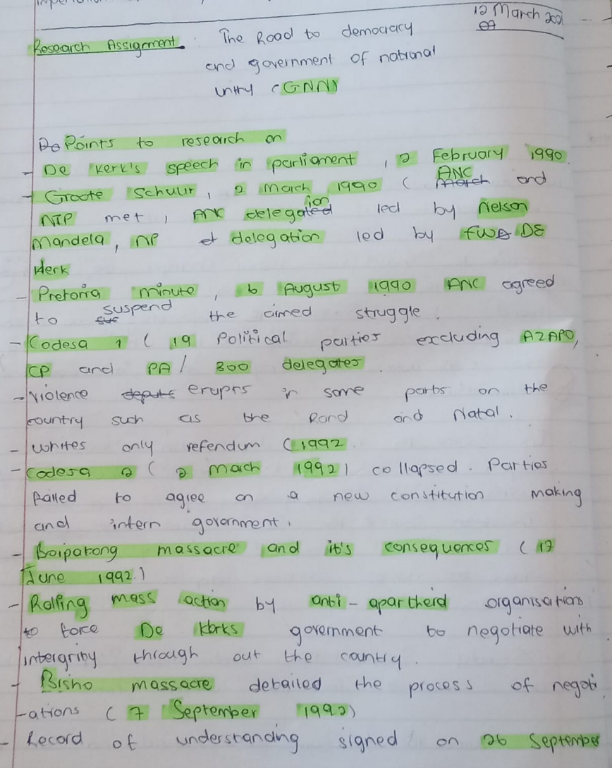 12 March 202
Research Assignment. The Road to democracy
and government of national
unity (GNNY
Points to research on
- De kerk's speech in parliament, 2 February 1990.
- Groote Schuur, 2 March 1990 ( ANC and
NIP met, ANC delegation led by Nelson
Mandela, NP delegation led by FW DE
Herk
- Pretoria minute, 6 August 1990 ANC agreed
to suspend the aimed struggle.
- Codesa 1 ( 19 Political parties excluding AZAPO,
CP and PA / 300 delegates.
- Violence erupts in some parts on the
country such as the Rand and Natal.
- Whites only refendum (1992
- Codesa 2 ( 2 Mach 1992) collapsed. Parties
failed to agree on a new constitution making
and intern government.
- Boipatong massacre and it's consequences ( 17
June 1992)
- Rolling mass action by anti-apartheid organisation
to force De klerks government to negotiate with
intergrity through out the country.
- Bisho massacre detailed the process of negoti
-ations ( 7 September 1992)
- Record of understanding signed on 26 September